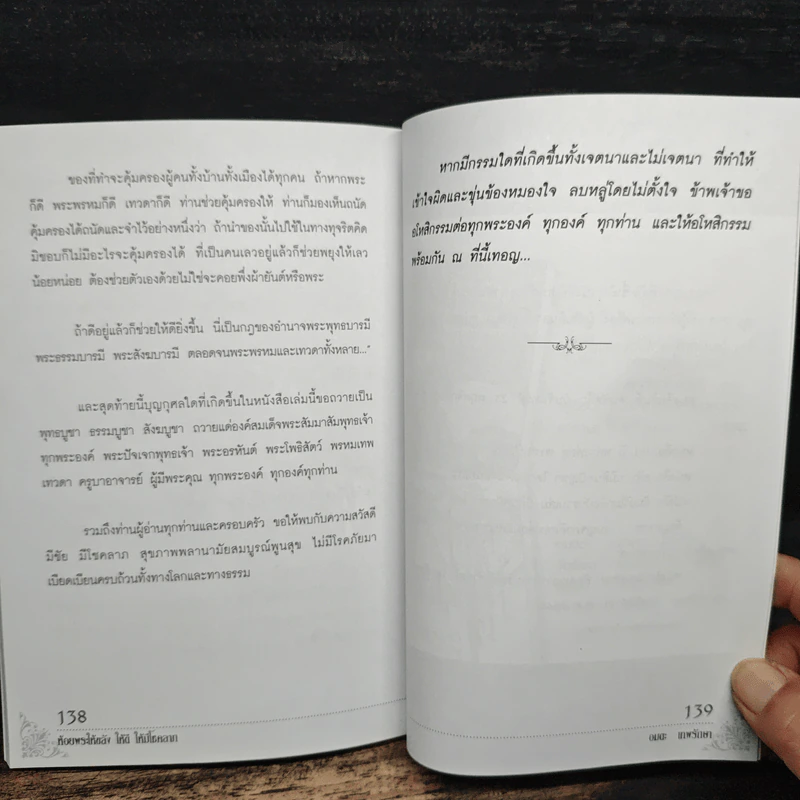 ของที่ทำจะคุ้มครองผู้คนทั้งบ้านทั้งเมืองได้ทุกคน ถ้าหากพระ
ก็ดี พระพรหมก็ดี เทวดาก็ดี ท่านช่วยคุ้มครองให้ ท่านก็มองเห็นถนัด
คุ้มครองได้ถนัดและจำไว้อย่างหนึ่งว่า ถ้านำของนั้นไปใช้ในทางทุจริตคิด
มิชอบก็ไม่มีอะไรจะคุ้มครองได้ ที่เป็นคนเลวอยู่แล้วก็ช่วยพยุงให้เลว
น้อยหน่อย ต้องช่วยตัวเองด้วยไม่ใช่จะคอยพึ่งผ้ายันต์หรือพระ
ถ้าดีอยู่แล้วก็ช่วยให้ดียิ่งขึ้น นี่เป็นกฎของอำนาจพระพุทธบารมี
พระธรรมบารมี พระสังฆบารมี ตลอดจนพระพรหมและเทวดาทั้งหลาย..."
และสุดท้ายนี้บุญกุศลใดที่เกิดขึ้นในหนังสือเล่มนี้ขอถวายเป็น
พุทธบูชา ธรรมบูชา สังฆบูชา ถวายแด่องค์สมเด็จพระสัมมาสัมพุทธเจ้า
ทุกพระองค์ พระปัจเจกพุทธเจ้า พระอรหันต์ พระโพธิสัตว์ พรหมเทพ
เทวดา ครูบาอาจารย์ ผู้มีพระคุณ ทุกพระองค์ ทุกองค์ทุกท่าน
รวมถึงท่านผู้อ่านทุกท่านและครอบครัว ขอให้พบกับความสวัสดี
มีชัย มีโชคลาภ สุขภาพพลานามัยสมบูรณ์พูนสุข ไม่มีโรคภัยมา
เบียดเบียนครบถ้วนทั้งทางโลกและทางธรรม
138
ห้อยพระให้ขลัง ให้ดี ให้มีโชคลาภ
หากมีกรรมใดที่เกิดขึ้นทั้งเจตนาและไม่เจตนา ที่ทำให้
เข้าใจผิดและขุ่นข้องหมองใจ ลบหลู่โดยไม่ตั้งใจ ข้าพเจ้าขอ
อโหสิกรรมต่อทุกพระองค์ ทุกองค์ ทุกท่าน และให้อโหสิกรรม
พร้อมกัน ณ ที่นี้เทอญ...
139
อมตะ เทพรักษา